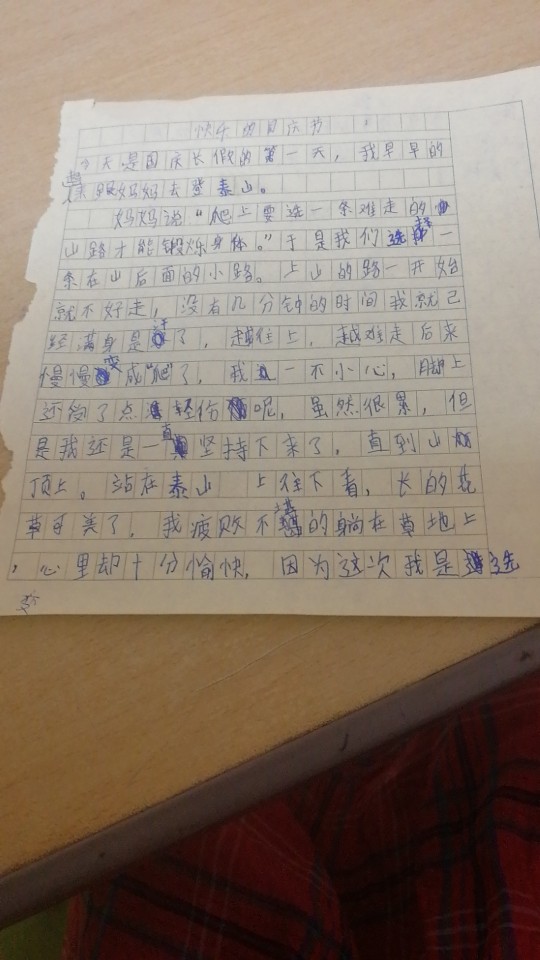 快乐的国庆节
今天是国庆长假的第一天，我早早的
起来跟妈妈去登泰山。
妈妈说“爬上要选一条难走的
山路才能锻炼身体。”于是我们选择一
条在山后面的小路。上山的路一开始
就不好走，没有几分钟的时间我就已
经满身是汗了，越往上，越难走后来
慢慢变成“爬”了，我一不小心，脚上
还受了点轻伤呢，虽然很累，但
是我还是一直坚持下来了，直到山
顶上。站在泰山 上往下看，长的花
草可美了，我疲败不堪的躺在草地上
，心里却十分愉快，因为这次我是选